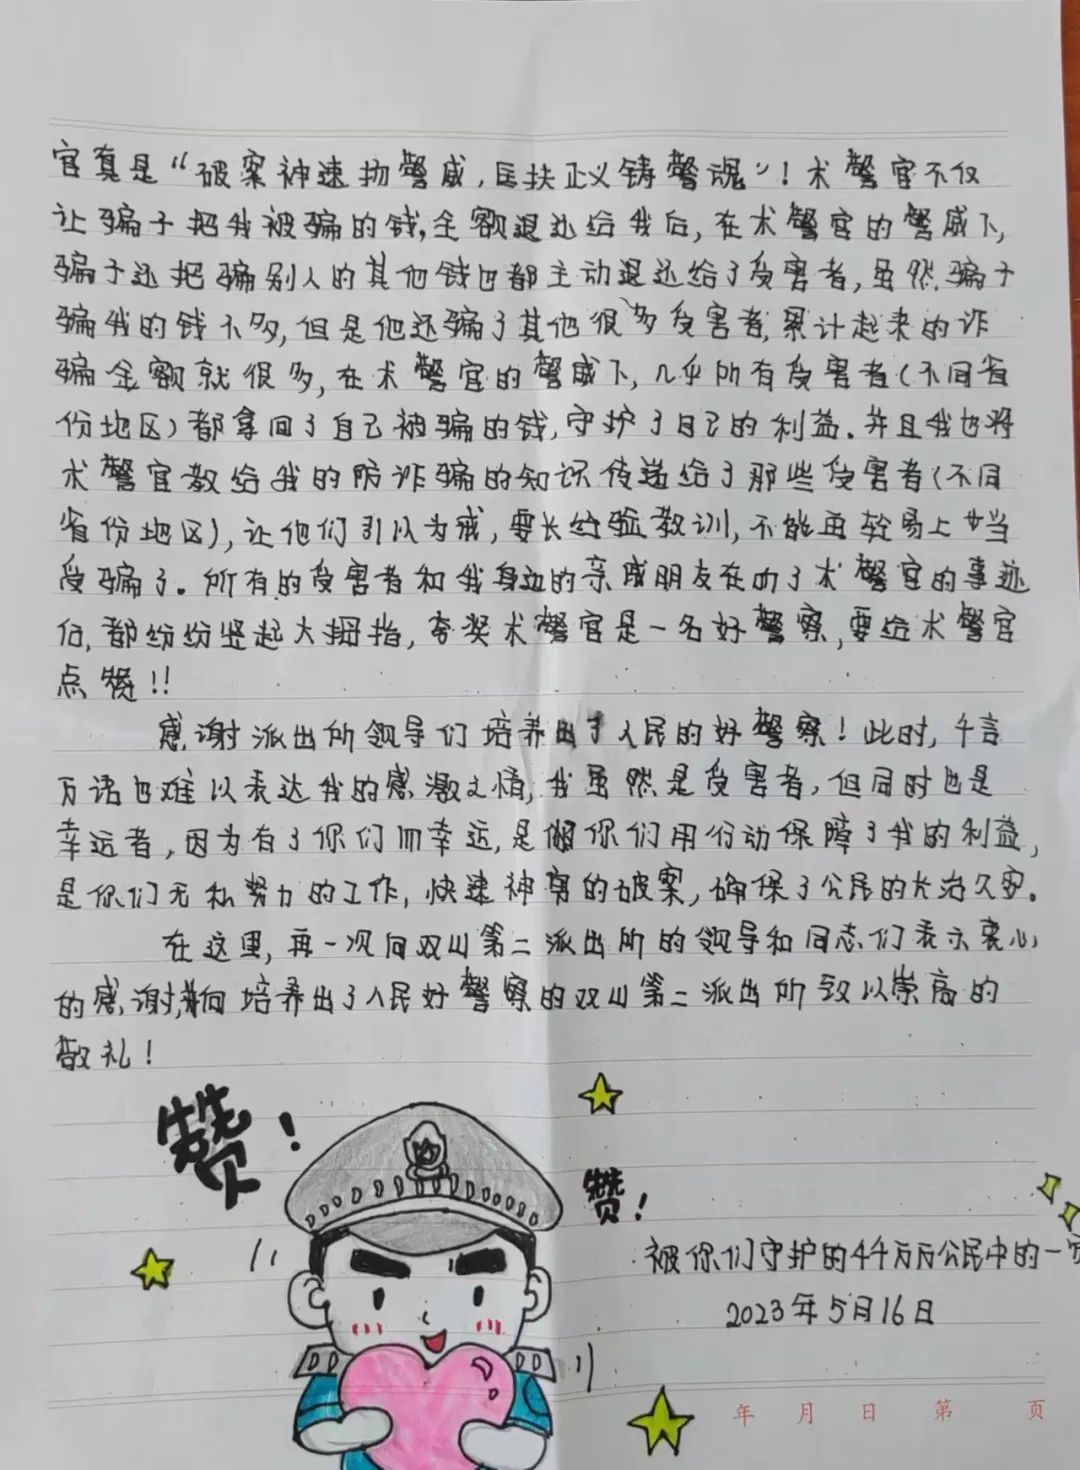 官真是“破案神速扬警威，匡扶正义铸警魂”！术警官不仅
让骗子把我被骗的钱,全额退还给我后，在术警官的警威下，
骗子还把骗别人的其他钱也都主动退还给了受害者，虽然骗子
骗我的钱不多，但是他还骗了其他很多受害者,累计起来的诈
骗金额就很多，在术警官的警威下，几乎所有受害者（不同省
份地区）都拿回了自己被骗的钱，守护了自己的利益。并且我也将
术警官教给我的防诈骗的知识传递给了那些受害者（不同
省份地区），让他们引以为戒，要长经验教训，不能再轻易上当
受骗了。所有的受害者和我身边的亲戚朋友在听了术警官的事迹
后，都纷纷竖起大拇指，夸奖术警官是一名好警察，要给术警官
点赞!!
感谢派出所领导们培养出了人民的好警察！此时，千言
万语也难以表达我的感激之情，我虽然是受害者，但同时也是
幸运者，因为有了你们而幸运，是你们用行动保障了我的利益，
是你们无私努力的工作，快速神勇的破案，确保了公民的长治久安。
在这里，再一次向双山第二派出所的领导和同志们表示衷心
的感谢,并向培养出了人民好警察的双山第二派出所致以崇高的
敬礼！
赞！
赞！
被你们守护的4千万万公民中的一
2023年5月16日
年 月 日 第 页